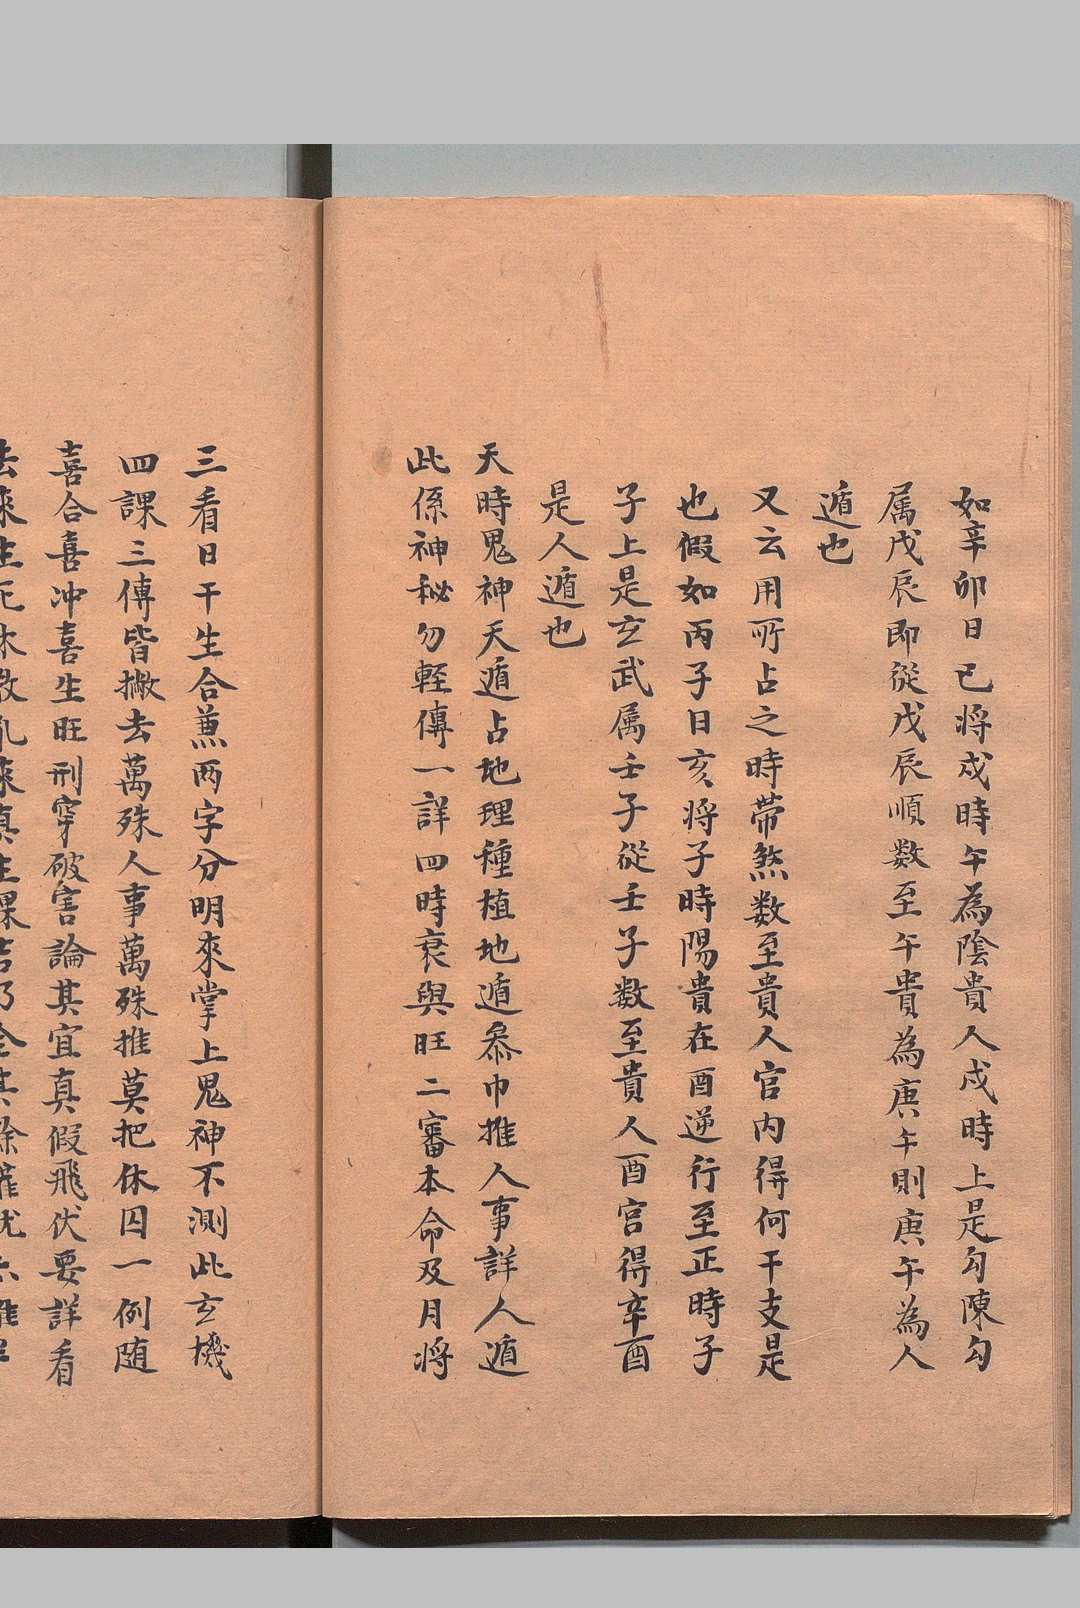 如辛卯日巳将戍時午為陰貴人戍時上是勾陳勾
属戊辰即從戊辰順数至午貴為庚午則庚午為人
遁也
又云用所占之時帶煞数至貴人官内得何干支是
也假如丙子日亥将子時陽貴在酉逆行至正時子
子上是玄武属壬子從壬子数至貴人酉宮得辛酉
是人遁也
天時鬼神天遁占地理種植地遁叅巾推人事詳人遁
此係神秘勿輊傳一詳四時衰與旺二審本命及月将
三看日干生合兼两字分明來掌上鬼神不測此玄機
四課三傳皆撇去萬殊人事萬殊推莫把休囚一例随
喜合喜冲喜生旺刑穿破害論其宜真假飛伏要詳看